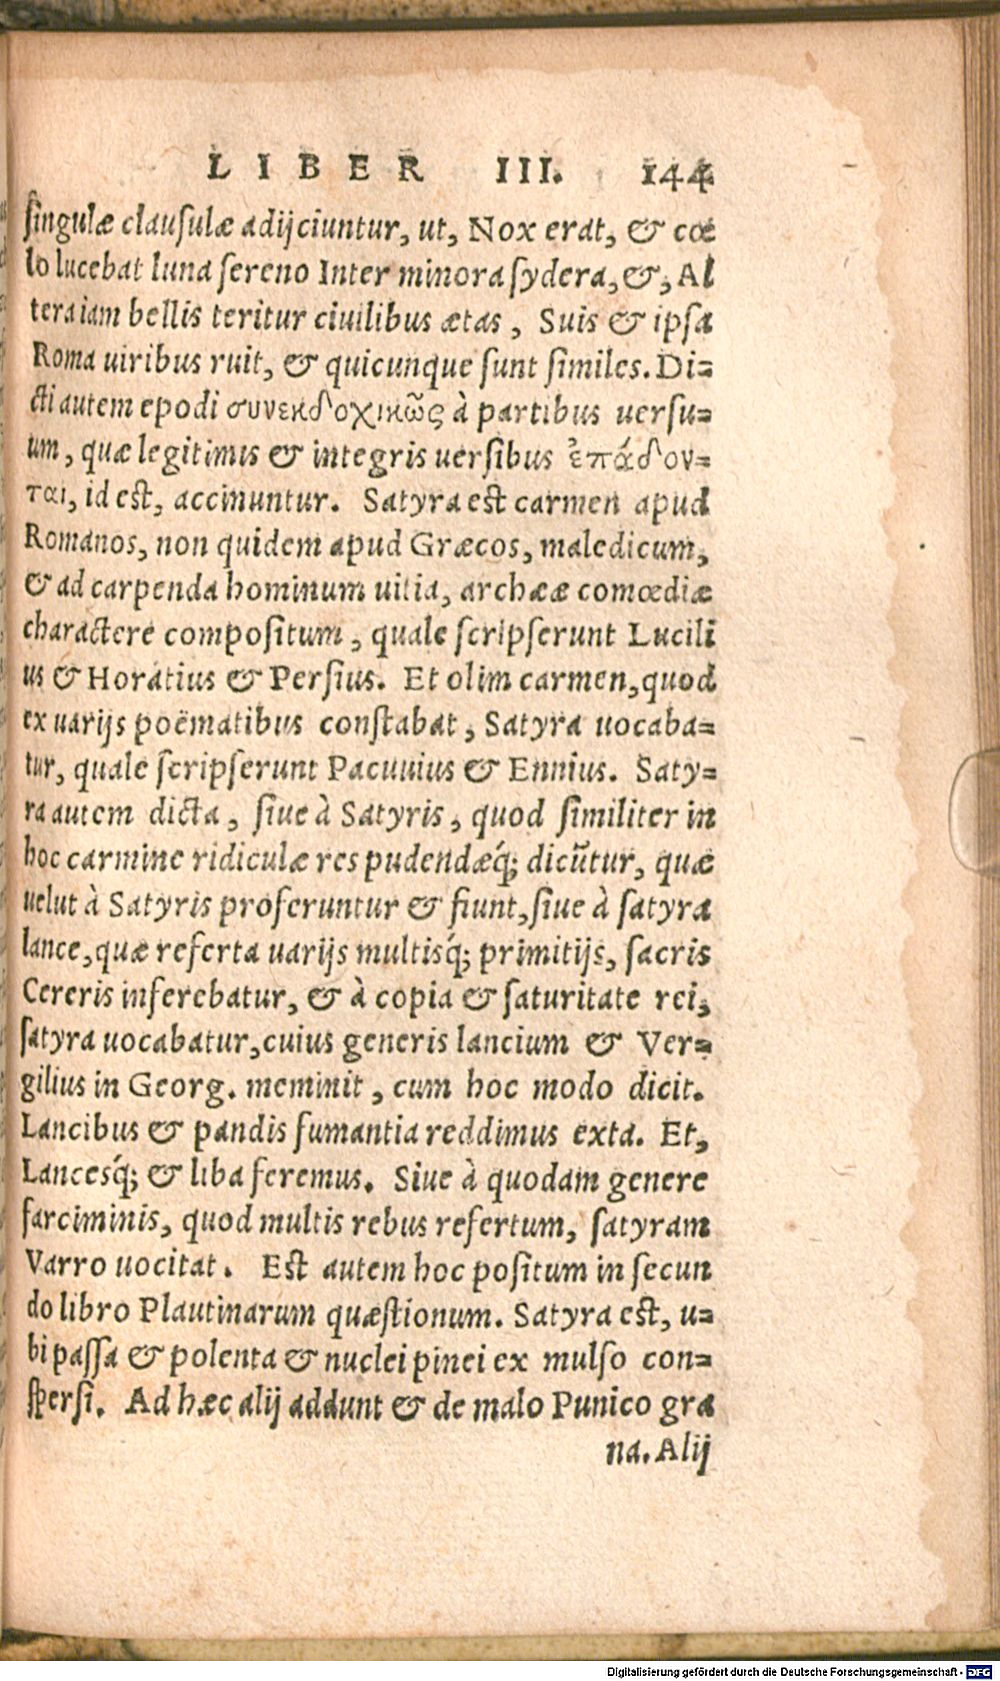 LIBER III. 144
singulæ clausulæ adijciuntur, ut, Nox erat, & cœ
lo lucebat luna sereno Inter minora sydera, &, Al
tera iam bellis teritur ciuilibus ætas, Suis & ipsa
Roma uiribus ruit, & quicunque sunt similes. Di=
cti autem epodi συνεκδοχικῶς à partibus uersu=
um, quæ legitimis & integris uersibus ἐπᾴδον=
ται, id est, accinuntur. Satyra est carmen apud
Romanos, non quidem apud Græcos, maledicum,
& ad carpenda hominum uitia, archææ comœdiæ
charactere compositum, quale scripserunt Lucili
us & Horatius & Persius. Et olim carmen, quod
ex uarijs poëmatibus constabat, Satyra uocaba=
tur, quale scripserunt Pacuuius & Ennius. Saty=
ra autem dicta, siue à Satyris, quod similiter in
hoc carmine ridiculæ res pudendæq́; dicūtur, quæ
uelut à Satyris proferuntur & fiunt, siue à satyra
lance, quæ referta uarijs multisq́; primitijs, sacris
Cereris inferebatur, & à copia & saturitate rei,
satyra uocabatur, cuius generis lancium & Ver=
gilius in Georg. meminit, cum hoc modo dicit.
Lancibus & pandis fumantia reddimus exta. Et,
Lancesq́; & liba feremus. Siue à quodam genere
farciminis, quod multis rebus refertum, satyram
Varro uocitat. Est autem hoc positum in secun
do libro Plautinarum quæstionum. Satyra est, u=
bi passa & polenta & nuclei pinei ex mulso con=
spersi. Ad hæc alij addunt & de malo Punico gra
na. Alij
Digitalisierung gefördert durch die Deutsche Forschungsgemeinschaft - DFG